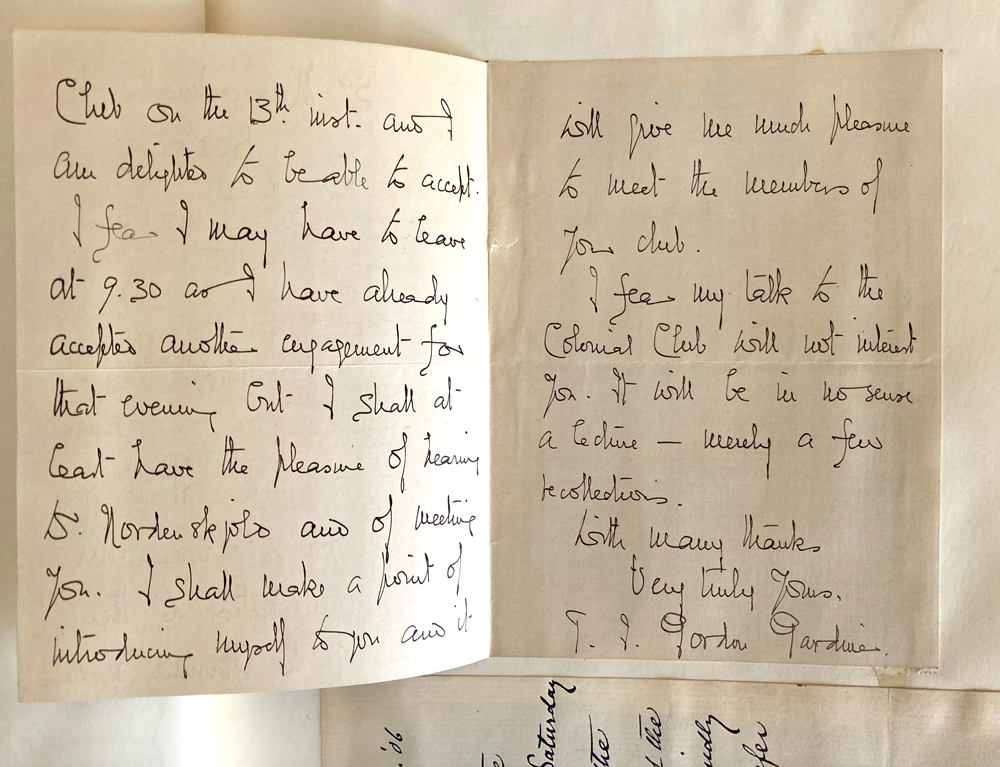 Club on the 13th. inst. and I
am delighted to be able to accept.
I fear I may have to leave
at 9.30 as I have already
accepted another engagement for
that evening but I shall at
least have the pleasure of hearing
Dr. Nordenskjold and of meeting
you. I shall make a point of
introducing myself to you and it
will give me much pleasure
to meet the members of
your club.
I fear my talk to the
Colonial Club will not interest
you. It will be in no sense
a lecture — merely a few
recollections.
With many thanks
Very truly yours.
T. I. Gordon Gardiner.
'06
Saturday
the
the
fer